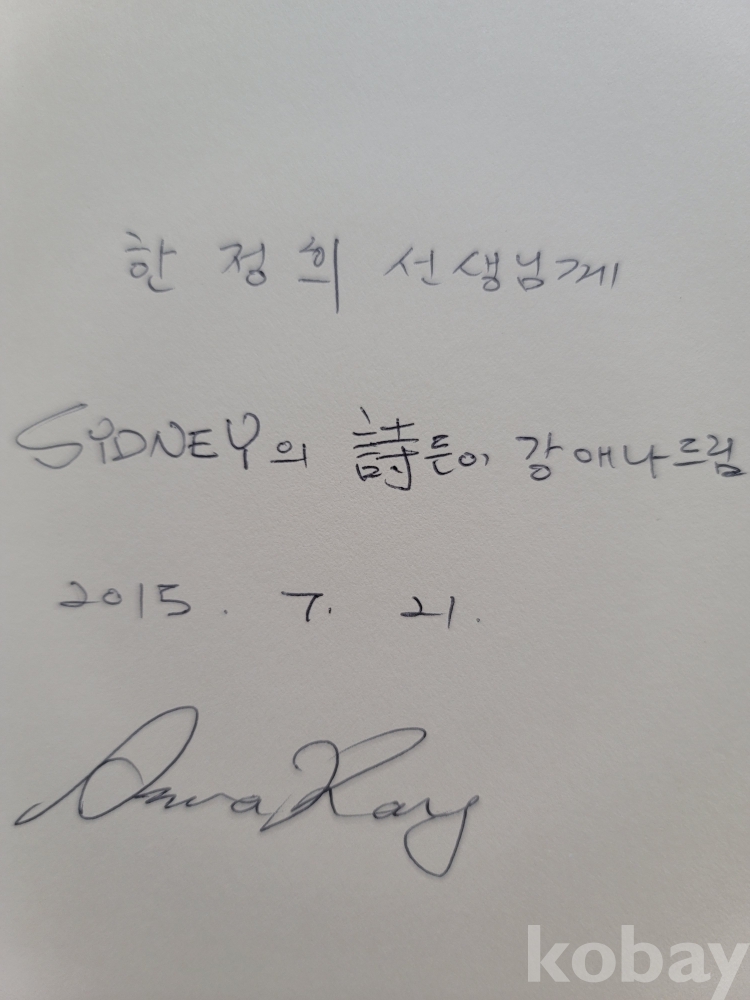 한 정 희 선생님께
SYDNEY의 詩튼이 강애나드림
2015. 7. 21.
Anna Kang
kobay